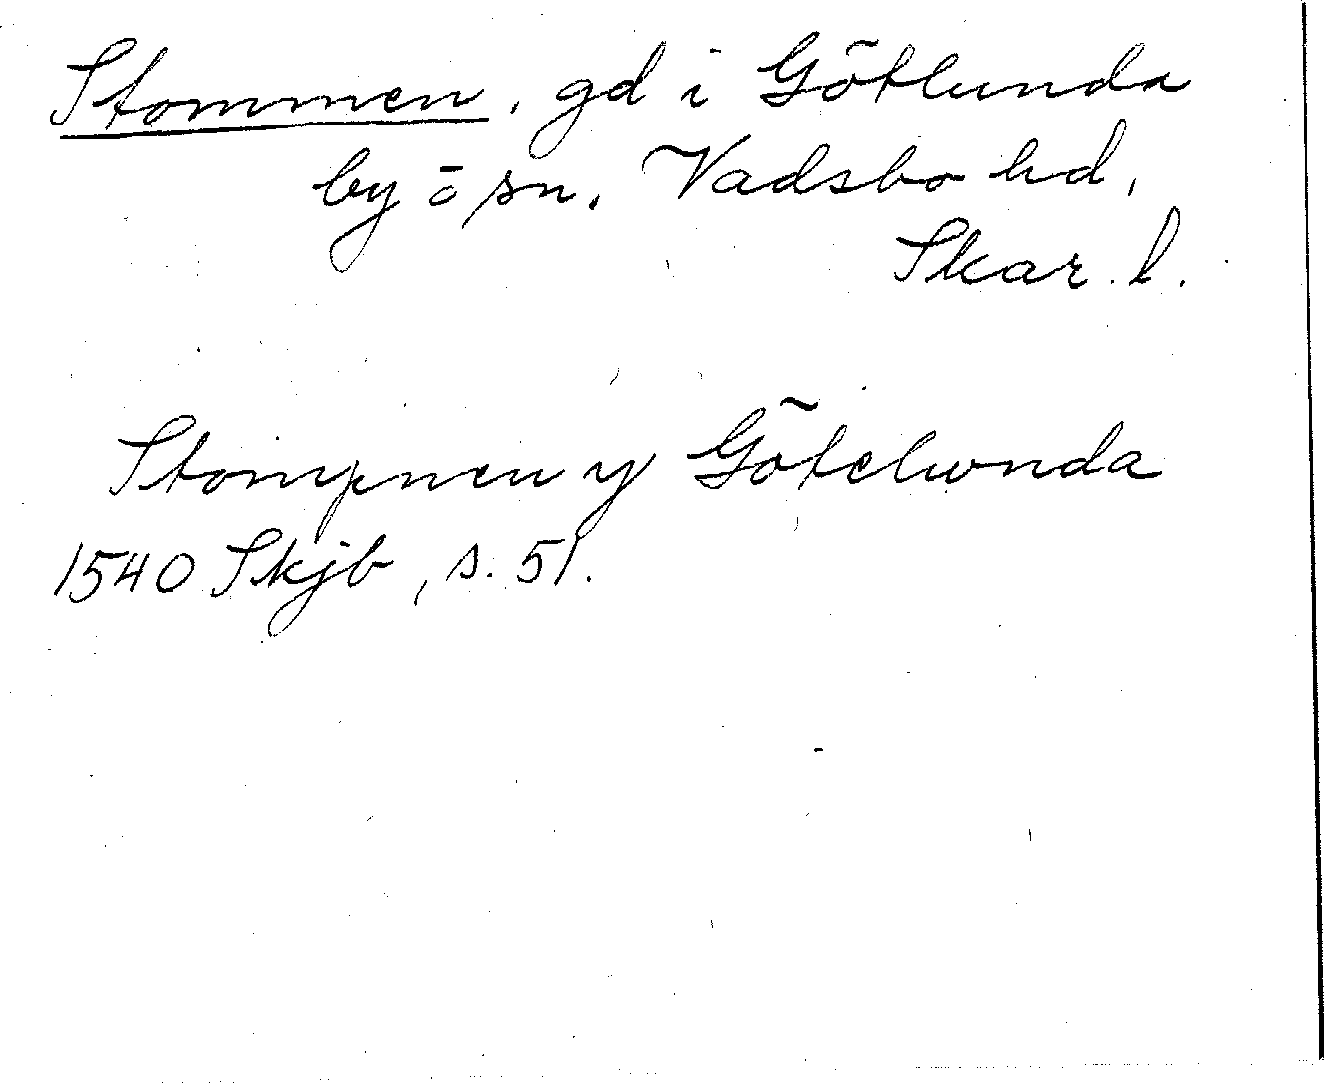 Stommen, gd i Götlunda
by o sn. Vadsbo hd,
Skar. l.
Stompnen y Götelunda
1540 Skjb, s. 51.